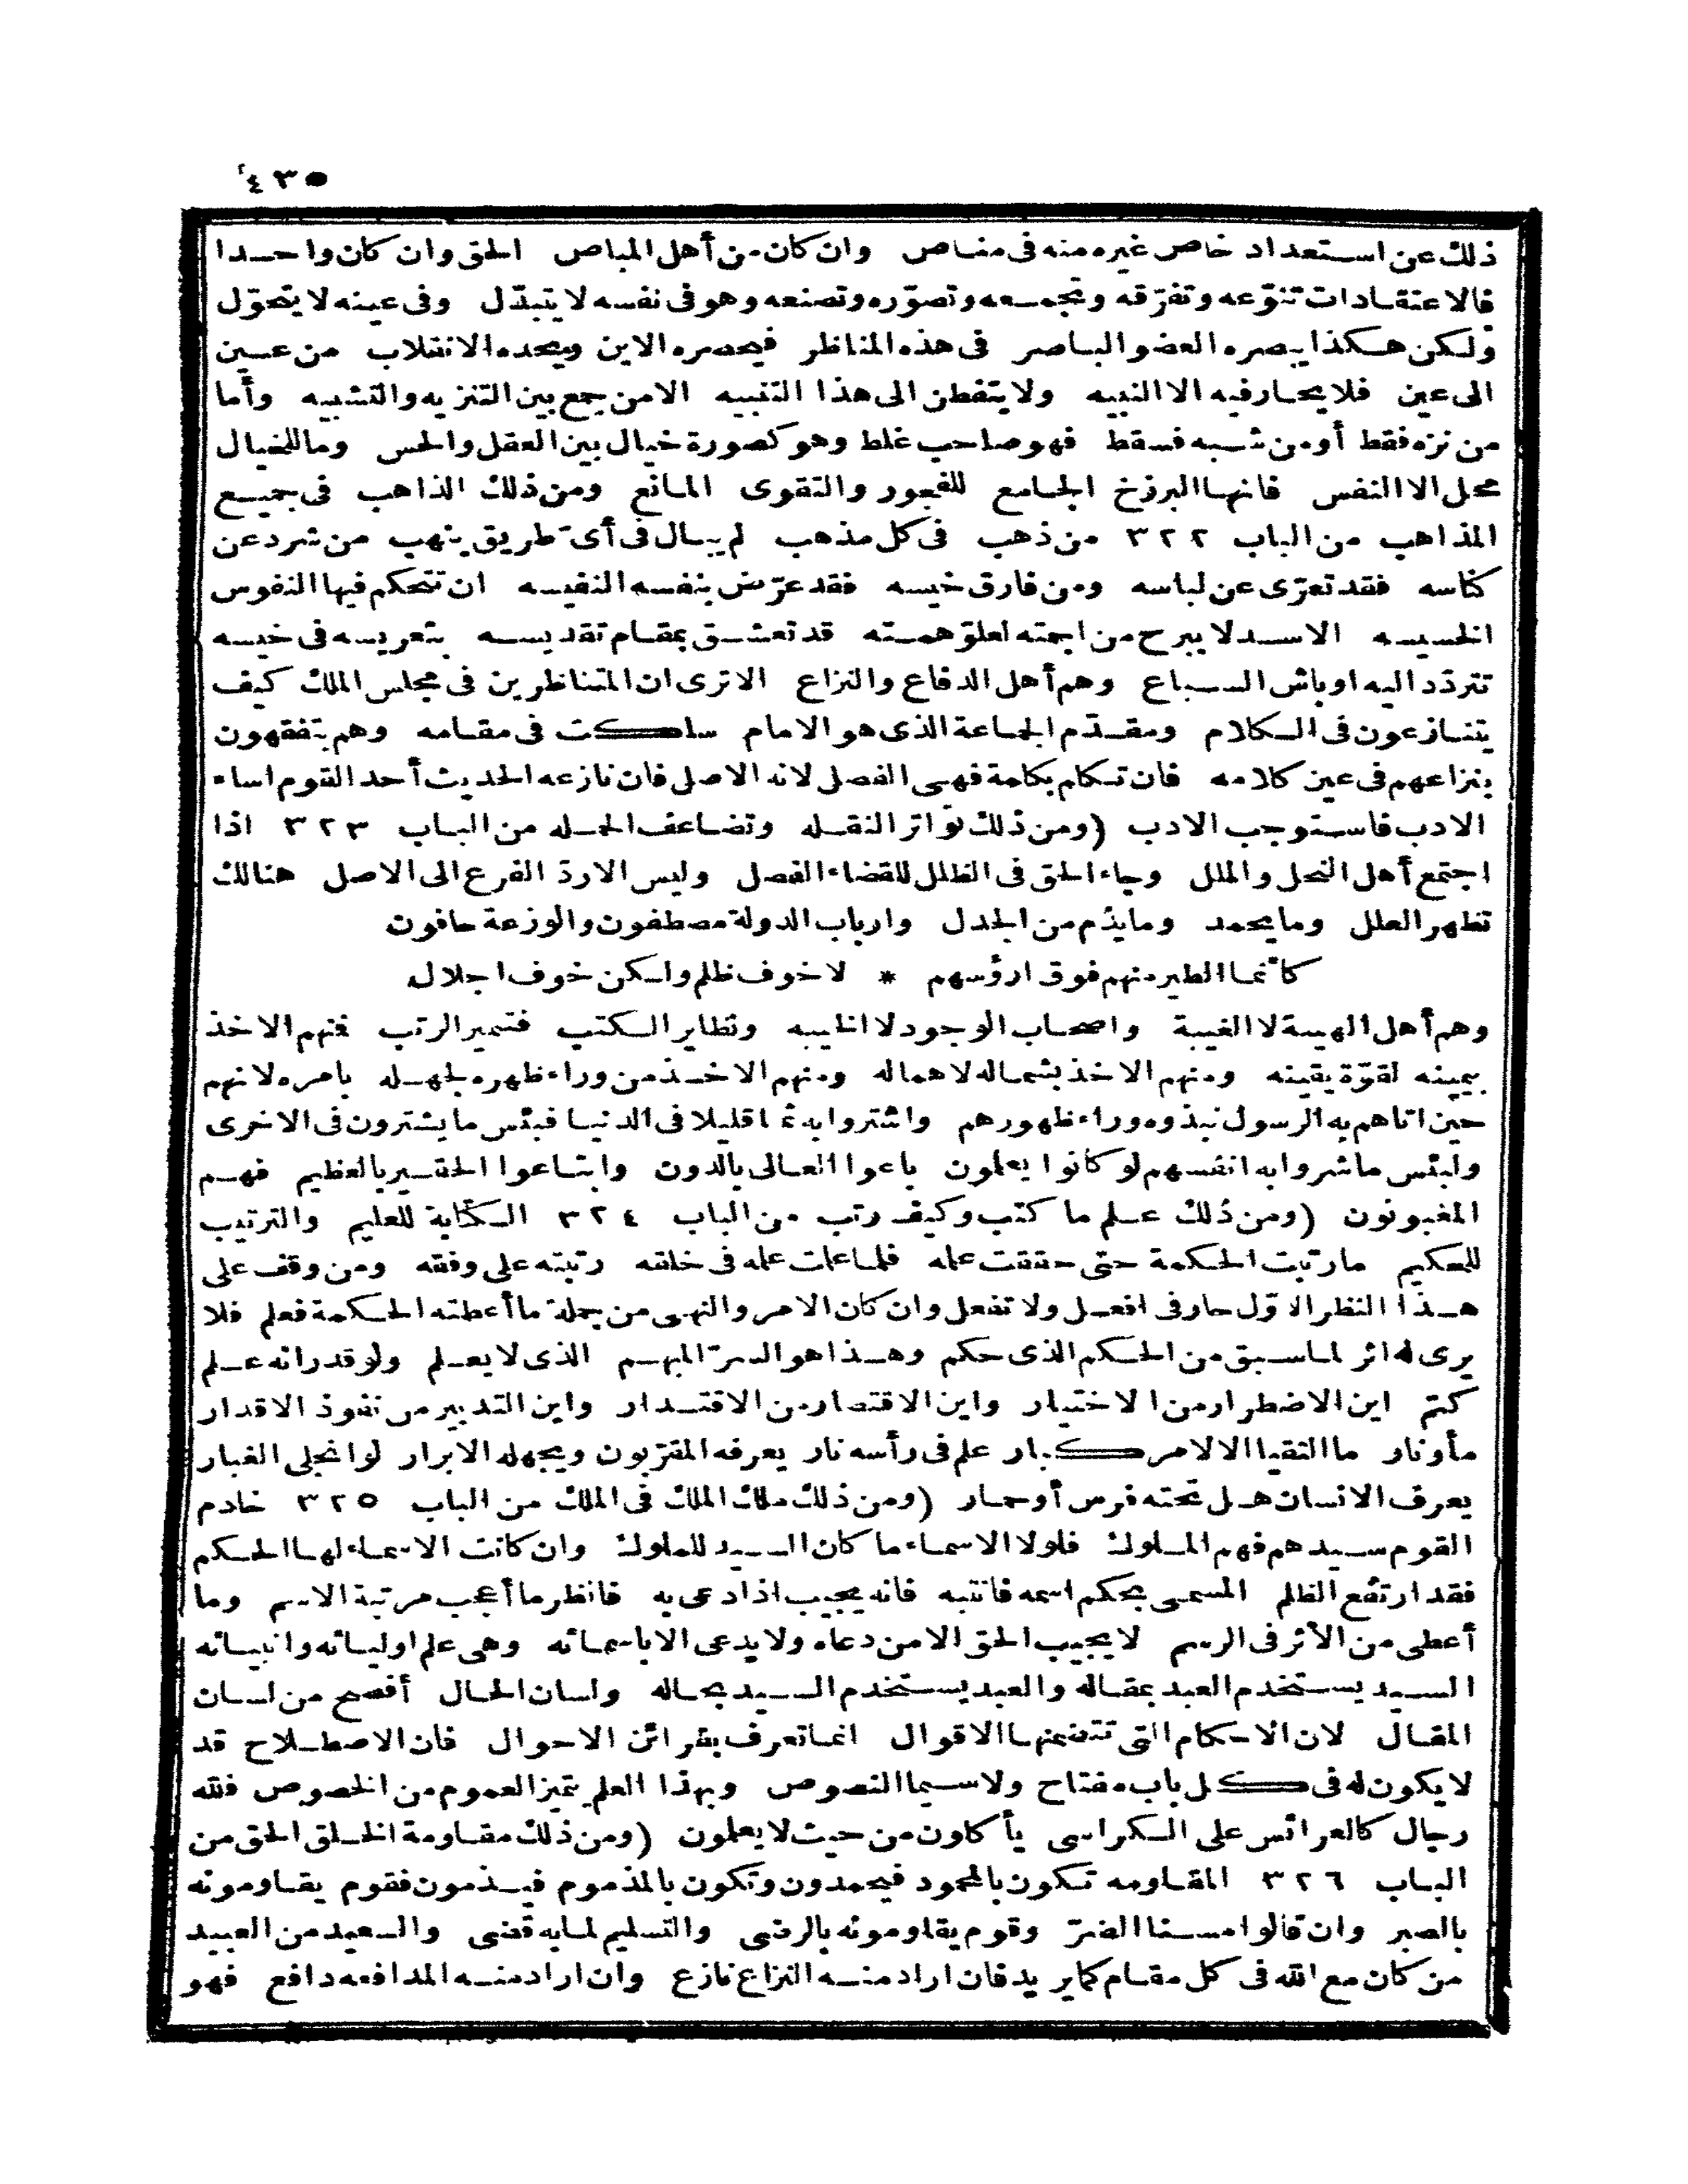 ٥٣٤
ذلك عن استعداد خاص غيره منه فى مناص وان كان من أهل المباص الحق وان كان واحدا
فالاعتقادات تنوّعه وتفرّقه وتجمعه وتصوّره وتصنعه وهو فى نفسه لا يتبدّل وفى عينه لا يتحوّل
ولكن هكذا يبصره العضو الباصر فى هذه المناظر فيحصره الاين ويحده الانقلاب من عين
الى عين فلا يحار فيه الا النبيه ولا يتفطن الى هذا التنبيه الا من جمع بين التنزيه والتشبيه وأما
من نزه فقط أو من شبه فسقط فهو صاحب غلط وهو كصورة خيال بين العقل والحس وما للخيال
محل الا النفس فانها البرزخ الجامع للفجور والتقوى المانع ومن ذلك الذاهب فى جميع
المذاهب من الباب ٣٢٢ من ذهب فى كل مذهب لم يبال فى أىّ طريق ينهب من شرد عن
كناسه فقد تعرّى عن لباسه ومن فارق خيسه فقد عرّض بنفسه النفيسه ان تتحكم فيها النفوس
الخسيسه الاسد لا يبرح من اجمته لعلوّ همته قد تعشق بمقام تقديسه بتعريسه فى خيسه
تتردّد اليه اوباش السباع وهم أهل الدفاع والنزاع الا ترى ان المتناظرين فى مجلس الملك كيف
يتنازعون فى الكلام ومقدّم الجماعة الذى هو الامام ساكت فى مقامه وهم يتفقهون
بنزاعهم فى عين كلامه فان تكلم بكلمة فهى الفصل لانه الاصل فان نازعه الحديث أحد القوم اساء
الادب فاستوجب الادب (ومن ذلك تواتر النقله وتضاعف الحمله من الباب ٣٢٣ اذا
اجتمع أهل النحل والملل وجاء الحق فى الظلل للقضاء الفصل وليس الا ردّ الفرع الى الاصل هنالك
تظهر العلل وما يحمد وما يذم من الجدل وارباب الدولة مصطفون والوزعة حافون
كأنما الطير منهم فوق ارؤسهم * لا خوف ظلم ولكن خوف اجلال
وهم أهل الهيبة لا الغيبة واصحاب الوجود لا الخيبه وتطاير الكتب فتميز الرتب فمنهم الاخذ
بيمينه لقوّة يقينه ومنهم الاخذ بشماله لاهماله ومنهم الاخذ من وراء ظهره لجهله بامره لانهم
حين اتاهم به الرسول نبذوه وراء ظهورهم واشتروا به ثمنا قليلا فى الدنيا فبئس ما يشترون فى الاخرى
ولبئس ما شروا به انفسهم لو كانوا يعلمون باعوا العالى بالدون وابتاعوا الحقير بالعظيم فهم
المغبونون (ومن ذلك علم ما كتب وكيف رتب من الباب ٣٢٤ الكتابة للعليم والترتيب
للحكيم ما رتبت الحكمة حتى حققت علمه فلما علمت علمه فى خلقه رتبته على وفقه ومن وقف على
هذا النظر الاوّل حار فى افعل ولا تفعل وان كان الامر والنهى من جملة ما أعطته الحكمة فعلم فلا
يرى له اثر لما سبق من الحكم الذى حكم وهذا هو السرّ المبهم الذى لا يعلم ولو قدر انه علم
كتم اين الاضطرار من الاختيار واين الاقتصار من الاقتدار واين التدبير من نفوذ الاقدار
ماء ونار ما التقيا الا لامر كبار علم فى رأسه نار يعرفه المقرّبون ويجهله الابرار لو انجلى الغبار
يعرف الانسان هل تحته فرس أو حمار (ومن ذلك ملك الملك فى الملك من الباب ٣٢٥ خادم
القوم سيدهم فهم الملوك فلولا الاسماء ما كان السيد للملوك وان كانت الاسماء لها الحكم
فقد ارتفع الظلم المسمى بحكم اسمه فانتبه فانه يجيب اذا دعى به فانظر ما أعجب مرتبة الاسم وما
أعطى من الاثر فى الرسم لا يجيب الحق الا من دعاه ولا يدعى الا باسمائه وهى علم اوليائه وانبيائه
السيد يستخدم العبد بمقاله والعبد يستخدم السيد بحاله ولسان الحال أفصح من لسان
المقال لان الاحكام التى تتضمنها الاقوال انما تعرف بقرائن الاحوال فان الاصطلاح قد
لا يكون له فى كل باب مفتاح ولا سيما النصوص وبهذا العلم يتميز العموم من الخصوص فلله
رجال كالعرائس على الكراسى يأكلون من حيث لا يعلمون (ومن ذلك مقاومة الخلق الحق من
الباب ٣٢٦ المقاومه تكون بالمحمود فيحمدون وتكون بالمذموم فيذمون فقوم يقاومونه
بالصبر وان قالوا مسنا الضرّ وقوم يقاومونه بالرضى والتسليم لما به قضى والسعيد من العبيد
من كان مع الله فى كل مقام كما يريد فان اراد منه النزاع نازع وان اراد منه المدافعه دافع فهو